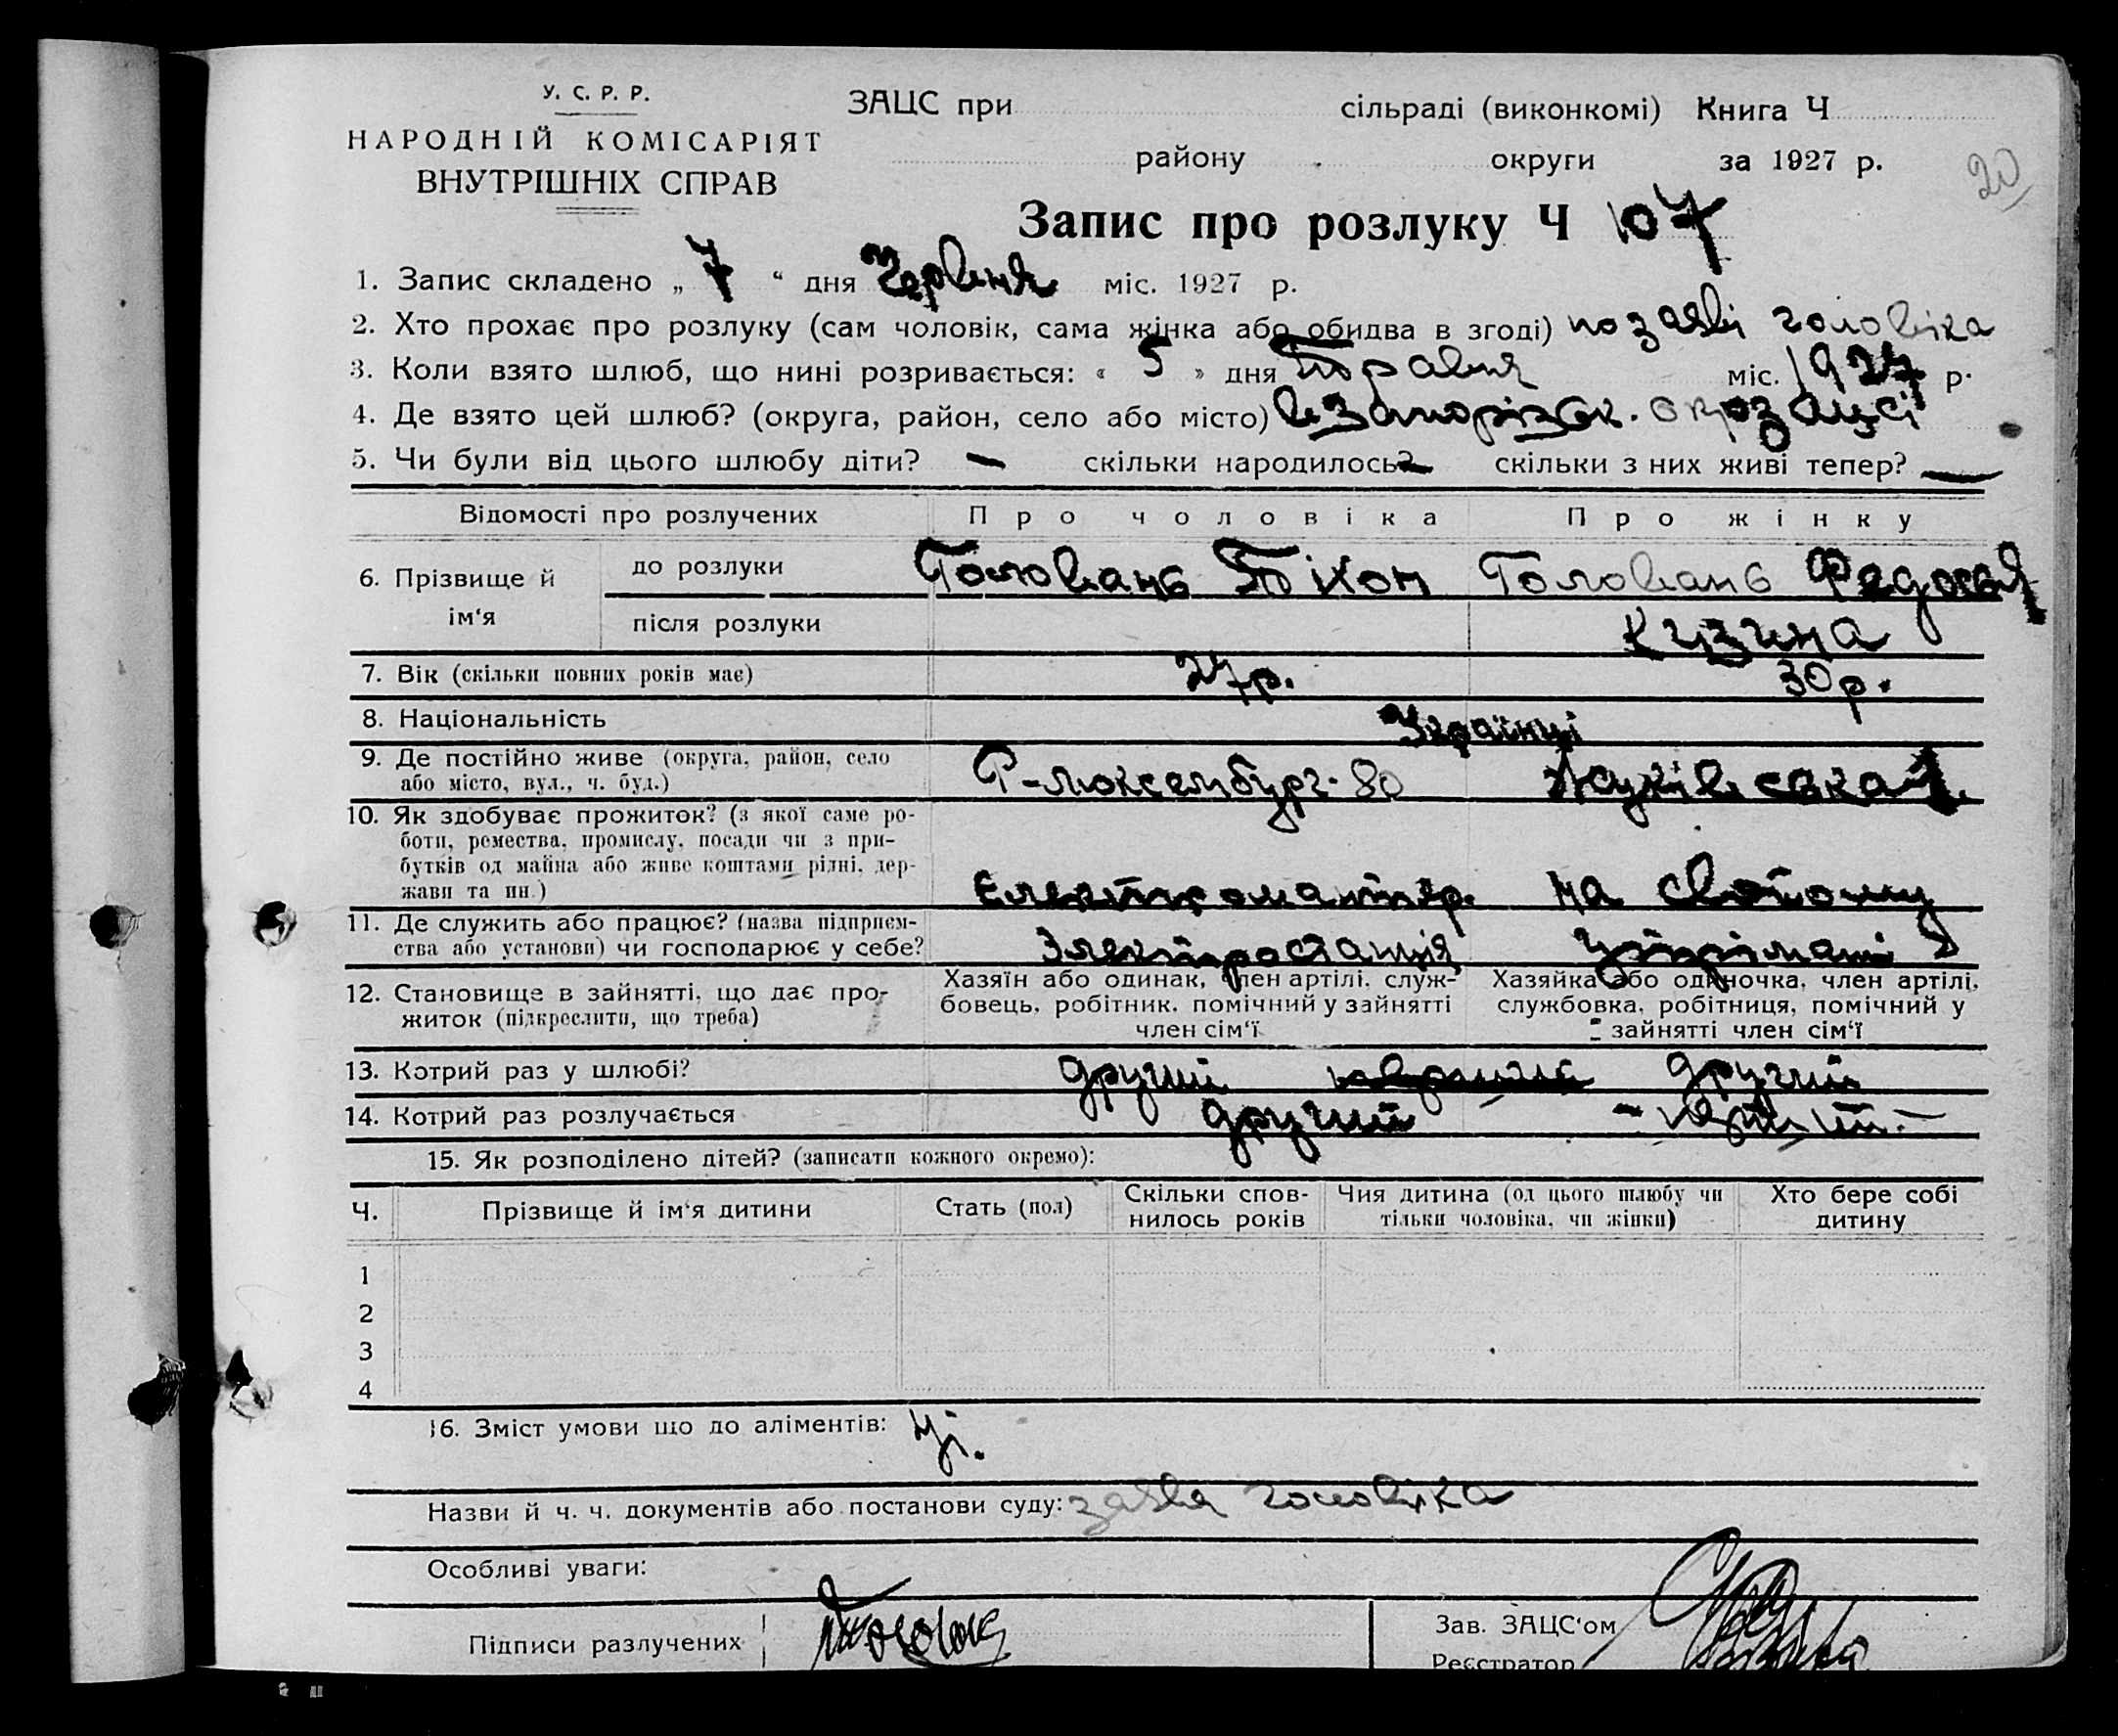 У. С. Р. Р.
НАРОДНІЙ КОМІСАРІЯТ
ВНУТРІШНІХ СПРАВ
ЗАЦС при сільраді (виконкомі) Книга Ч
району округи за 1927 р.
20
Запис про розлуку Ч 107
1. Запис складено „ 7 “ дня Червня міс. 1927 р.
2. Хто прохає про розлуку (сам чоловік, сама жінка або обидва в згоді) по заяві чоловіка
3. Коли взято шлюб, що нині розривається: « 5 » дня Травня міс. 1927 р.
4. Де взято цей шлюб? (округа, район, село або місто) в Запорізьк. окрзацсі
5. Чи були від цього шлюбу діти? — скільки народилось? — скільки з них живі тепер? —
Відомості про розлучених Про чоловіка Про жінку
6. Прізвище й ім‘я
до розлуки Головань Тіхон Головань Федосія
після розлуки Кузина
7. Вік (скільки повних років має) 27р. 30р.
8. Національність Українці
9. Де постійно живе (округа, район, село або місто, вул., ч. буд.) Р-люксембург. 80
10. Як здобуває прожиток? (з якої саме роботи, ремества, промислу, посади чи з прибутків од майна або живе коштами рідні, держави та ин.) Електромонтер. на свойому
11. Де служить або працює? (назва підприємства або установи) чи господарює у себе? Электростанція утріманні
12. Становище в зайнятті, що дає прожиток (підкреслити, що треба)
Хазяїн або одинак, член артілі, службовець, робітник, помічний у зайнятті член сім‘ї
Хазяйка або одиночка, член артілі, службовка, робітниця, помічний у зайнятті член сім‘ї
13. Котрий раз у шлюбі? другий другий
14. Котрий раз розлучається другий
15. Як розподілено дітей? (записати кожного окремо):
Ч. Прізвище й ім‘я дитини Стать (пол) Скільки сповнилось років Чия дитина (од цього шлюбу чи тільки чоловіка, чи жінки) Хто бере собі дитину
1
2
3
4
16. Зміст умови що до аліментів: ні.
Назви й ч. ч. документів або постанови суду: заява чоловіка
Особливі уваги:
Підписи разлучених
Зав. ЗАЦС‘ом
Реєстратор